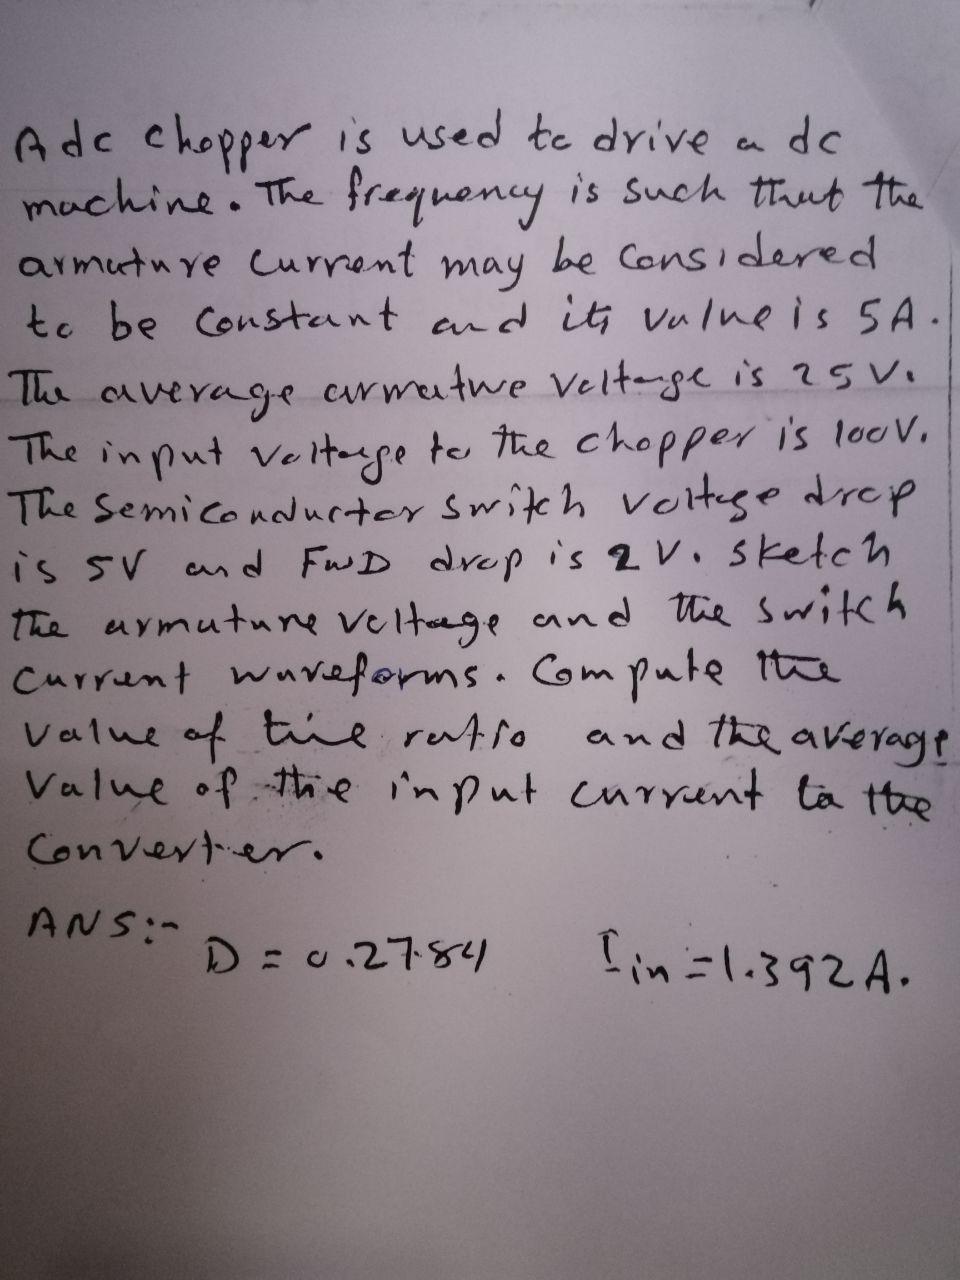 A dc chopper is used to drive a dc
machine. The frequency is such that the
armature current may be considered
to be constant and its value is 5A.
The average armature voltage is 25V.
The input voltage to the chopper is 100V.
The semiconductor switch voltage drop
is 5V and FWD drop is 2V. Sketch
the armature voltage and the switch
current waveforms. Compute the
value of the ratio and the average
value of the input current to the
converter.
ANS:-
D = 0.2784 Iin = 1.392 A.